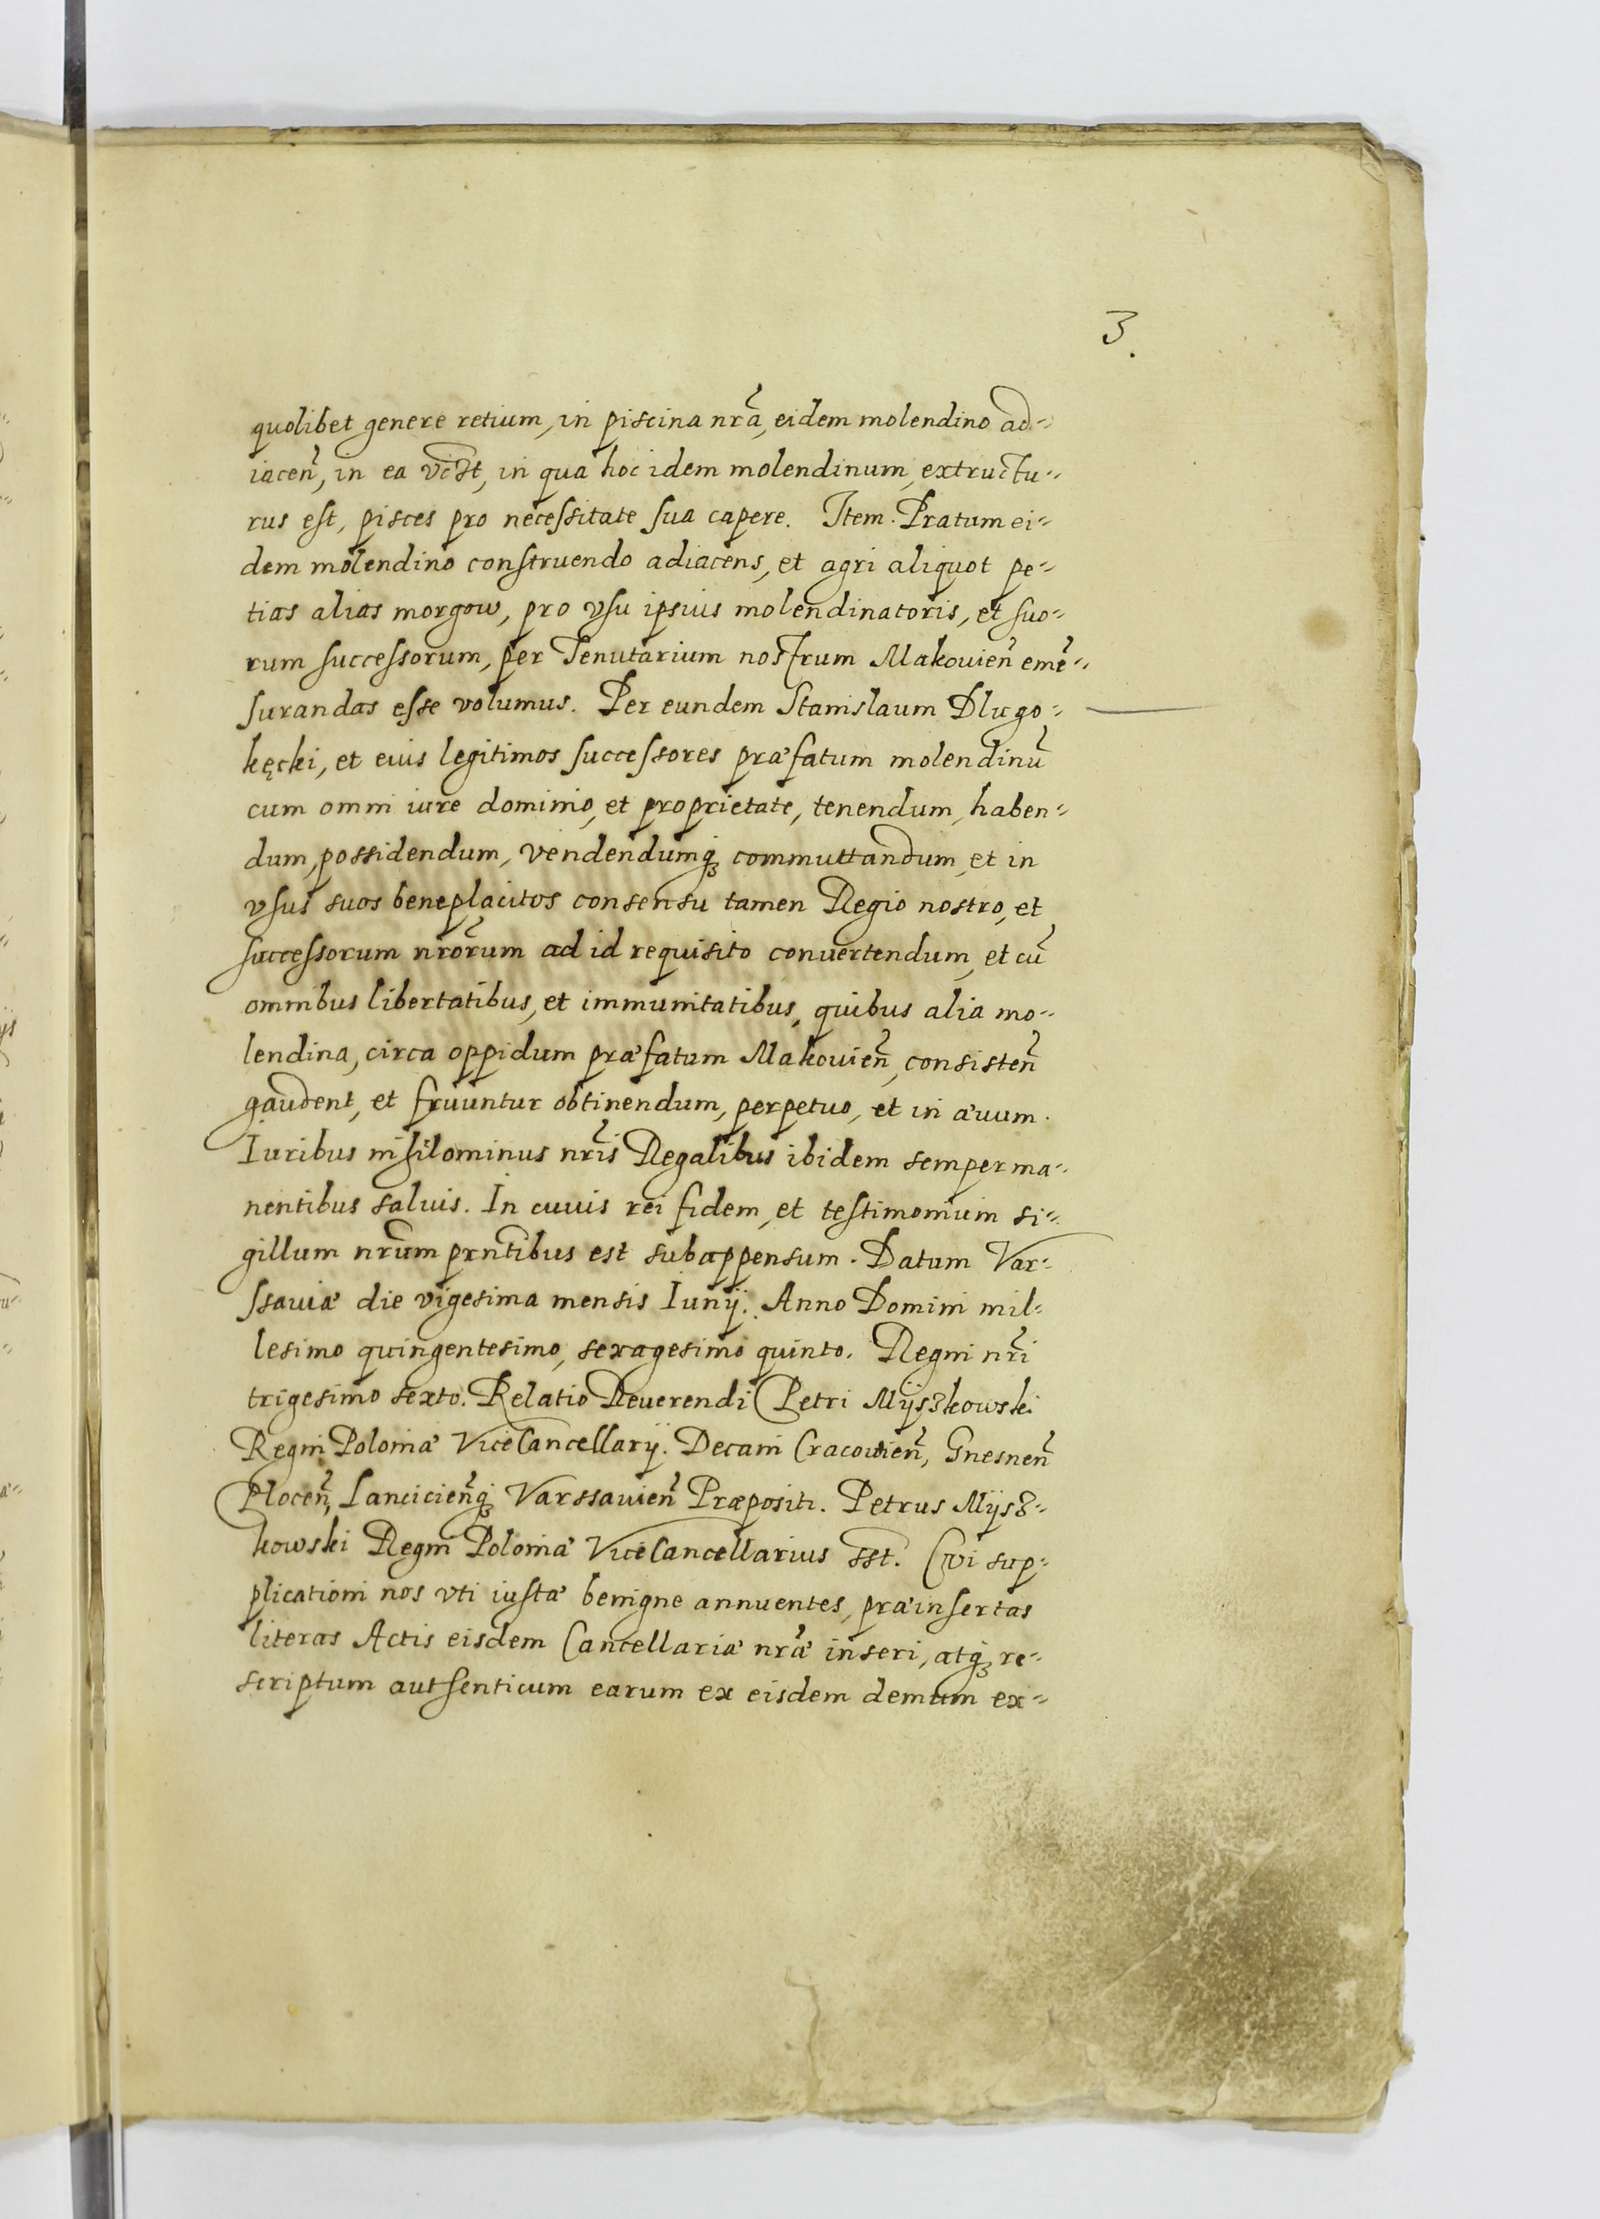 3.
quolibet genere retium, in piscina nrã, eidem molendino ad-
iaceñ, in ea vcȝt, in qua hoc idem molendinum, extructu-
rus est, pisces pro necessitate sua capere. Item. Pratum ei-
dem molendino construendo adiacens, et agri aliquot pe-
tias alias morgow, pro vsu ipsius molendinatoris, et suo-
rum successorum, per Tenutarium nostrum Makouieñ emẽ-
surandas esse volumus. Per eundem Stanislaum Dlugo-
kęcki, et eius legitimos successores præfatum molendinũ
cum omni iure dominio, et proprietate, tenendum, haben-
dum, possidendum, vendendumqȝ commuttandum, et in
vsus suos beneplacitos consensu tamen Regio nostro, et
successorum nrõrum ad id requisito conuertendum, et cũ
omnibus libertatibus, et immunitatibus, quibus alia mo-
lendina, circa oppidum præfatum Makouieñ, consisteñ
gaudent, et fruuntur obtinendum, perpetuo, et in æuum.
Iuribus nihilominus nrĩs Regalibus ibidem semper ma-
nentibus saluis. In cuius rei fidem, et testimonium si-
gillum nrũm prñtibus est subappensum. Datum Var-
ssauiæ die vigesima mensis Iunij. Anno Domini mil-
lesimo quingentesimo, sexagesimo quinto. Regni nrĩ
trigesimo sexto. Relatio Reuerendi Petri Mijszkowski
Regni Poloniæ ViceCancellarij. Decani Cracowieñ, Gnesneñ
Ploceñ, Lancicieñqȝ Varssauieñ Præpositi. Petrus Mijsz-
kowski Regni Poloniæ ViceCancellarius sst. Cui sup-
plicationi nos vti iustæ benigne annuentes, præinsertas
literas Actis eisdem Cancellariæ nræ̃ inseri, atqȝ re-
scriptum authenticum earum ex eisdem demum ex-